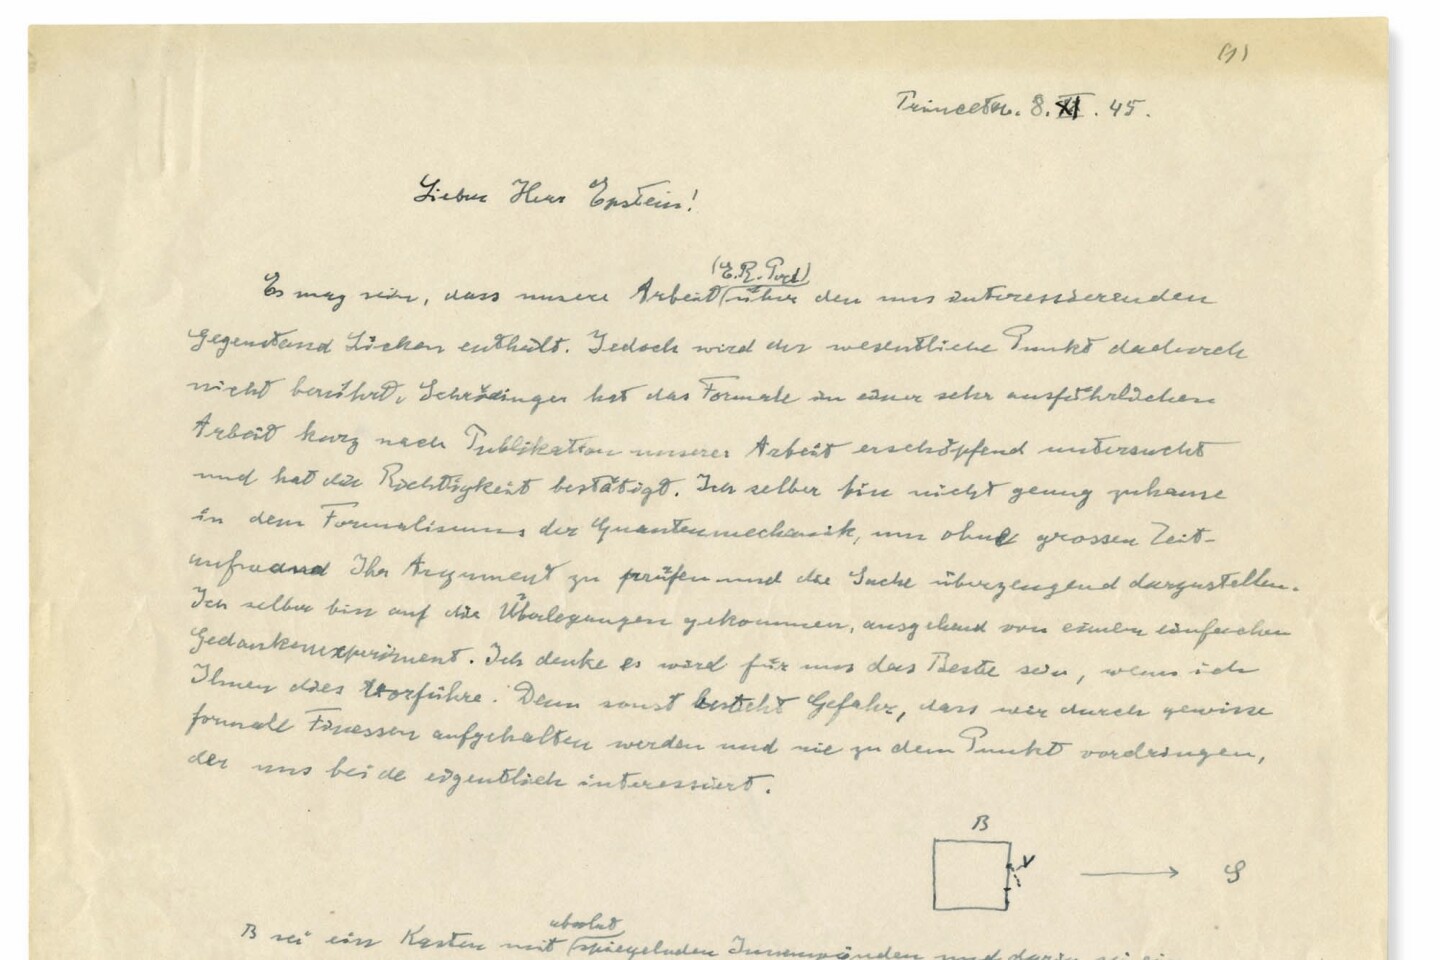 (1)
Princeton. 8. XI. 45.
Lieber Herr Epstein!
(E. R. Pod)
Es mag sein, dass unsere Arbeit über den uns interessierenden
Gegenstand Lücken enthält. Jedoch wird der wesentliche Punkt dadurch
nicht berührt. Schrödinger hat das Formale in einer sehr ausführlichen
Arbeit kurz nach Publikation unserer Arbeit erschöpfend untersucht
und hat die Richtigkeit bestätigt. Ich selber bin nicht genug zuhause
in dem Formalismus der Quantenmechanik, um ohne grossen Zeit-
aufwand Ihr Argument zu prüfen und die Sache überzeugend darzustellen.
Ich selber bin auf die Überlegungen gekommen, ausgehend von einem einfachen
Gedankenexperiment. Ich denke es wird für uns das Beste sein, wenn ich
Ihnen dies vorführe. Denn sonst besteht Gefahr, dass wir durch gewisse
formale Finessen aufgehalten werden und nie zu dem Punkt vordringen,
der uns beide eigentlich interessiert.
B
V
S
absolut
B sei ein Kasten mit spiegelnden Innenwänden und darin sei